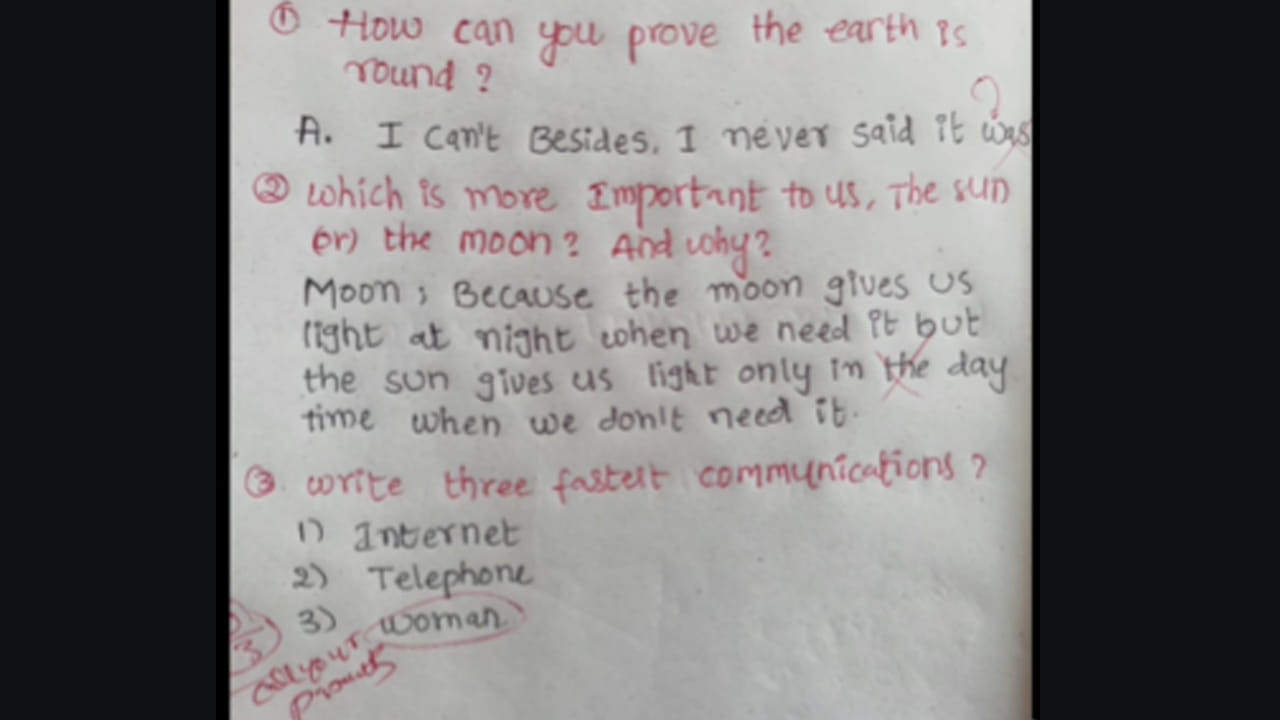 ① How can you prove the earth is
round ?
A. I can't Besides, I never said it was
② which is more Important to us, The sun
(or) the moon? And why?
Moon; Because the moon gives us
light at night when we need it but
the sun gives us light only in the day
time when we don't need it.
③. write three fastest communications ?
1) Internet
2) Telephone
3) woman
0/3
call your
parents